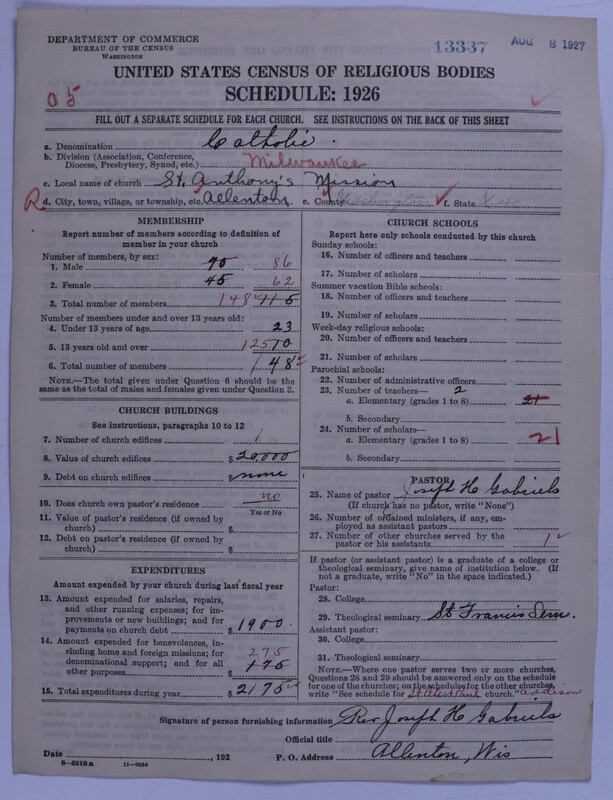 DEPARTMENT OF COMMERCE
BUREAU OF THE CENSUS
WASHINGTON
13337
AUG 8 1927
UNITED STATES CENSUS OF RELIGIOUS BODIES
05
SCHEDULE: 1926
FILL OUT A SEPARATE SCHEDULE FOR EACH CHURCH. SEE INSTRUCTIONS ON THE BACK OF THIS SHEET
a. Denomination Catholic.
b. Division (Association, Conference, Diocese, Presbytery, Synod, etc.) Milwaukee
c. Local name of church St. Anthony's Mission
R d. City, town, village, or township, etc. Allenton e. County Washington f. State Wis
MEMBERSHIP
Report number of members according to definition of member in your church
Number of members, by sex:
1. Male 70 86
2. Female 45 62
3. Total number of members 148 115
Number of members under and over 13 years old:
4. Under 13 years of age 23
5. 13 years old and over 125 70
6. Total number of members 148
NOTE.—The total given under Question 6 should be the same as the total of males and females given under Question 3.
CHURCH BUILDINGS
See instructions, paragraphs 10 to 12
7. Number of church edifices 1
8. Value of church edifices $20,000
9. Debt on church edifices $none
10. Does church own pastor's residence no
Yes or No
11. Value of pastor's residence (if owned by church) $
12. Debt on pastor's residence (if owned by church) $
EXPENDITURES
Amount expended by your church during last fiscal year
13. Amount expended for salaries, repairs, and other running expenses; for improvements or new buildings; and for payments on church debt $1900.
14. Amount expended for benevolences, including home and foreign missions; for denominational support; and for all other purposes 275 175
15. Total expenditures during year $2175
CHURCH SCHOOLS
Report here only schools conducted by this church
Sunday schools:
16. Number of officers and teachers
17. Number of scholars
Summer vacation Bible schools:
18. Number of officers and teachers
19. Number of scholars
Week-day religious schools:
20. Number of officers and teachers
21. Number of scholars
Parochial schools:
22. Number of administrative officers
23. Number of teachers— 2
a. Elementary (grades 1 to 8) 21
b. Secondary
24. Number of scholars—
a. Elementary (grades 1 to 8) 21
b. Secondary
PASTOR
25. Name of pastor Joseph H Gabriels
(If church has no pastor, write "None")
26. Number of ordained ministers, if any, employed as assistant pastors
27. Number of other churches served by the pastor or his assistants 1
If pastor (or assistant pastor) is a graduate of a college or theological seminary, give name of institution below. (If not a graduate, write "No" in the space indicated.)
Pastor:
28. College
29. Theological seminary St Francis Sem.
Assistant pastor:
30. College
31. Theological seminary
NOTE.—Where one pastor serves two or more churches, Questions 28 and 29 should be answered only on the schedule for one of the churches; on the schedules for the other churches, write "See schedule for St Peter & Paul church." Addison
Signature of person furnishing information Rev Joseph H Gabriels
Official title
Date , 192 P. O. Address Allenton, Wis
8—5518 a 11—9034